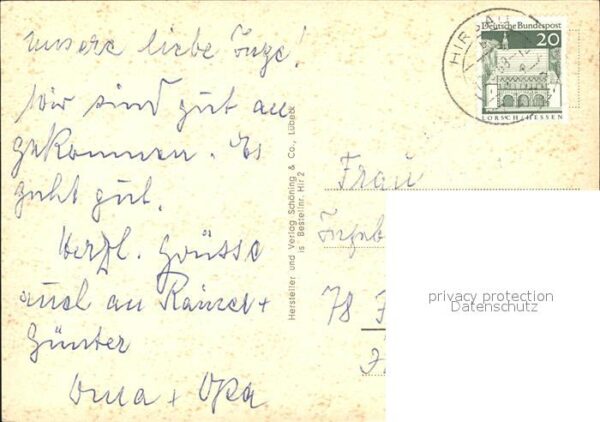 Unsere liebe Inge!
Wir sind gut an
gekommen. Es
geht gut.
Herzl. Grüsse
auch an Rainer +
Günter
Oma + Opa
Hersteller und Verlag Schöning & Co., Lübeck
IS Bestellnr. Hir 2
HIRSAU
Deutsche Bundespost
20
LORSCH/HESSEN
Frau
Ingeb
78 F
privacy protection
Datenschutz